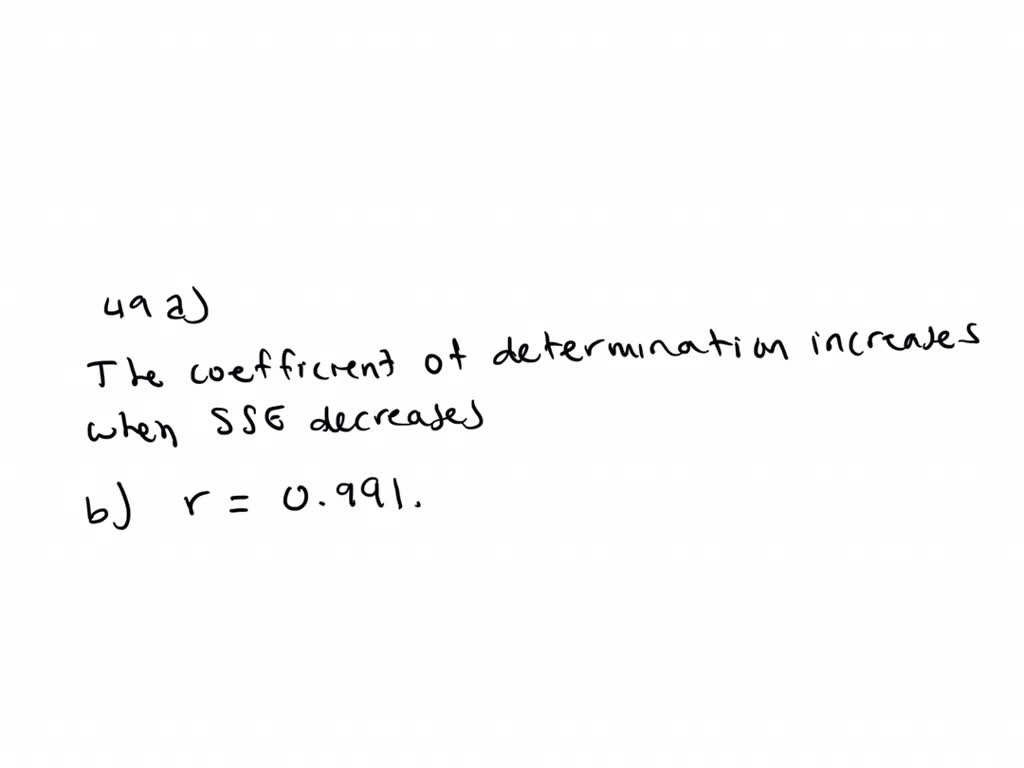 49 a)
The coefficient of determination increases
when SSE decreases
b) r = 0.991.